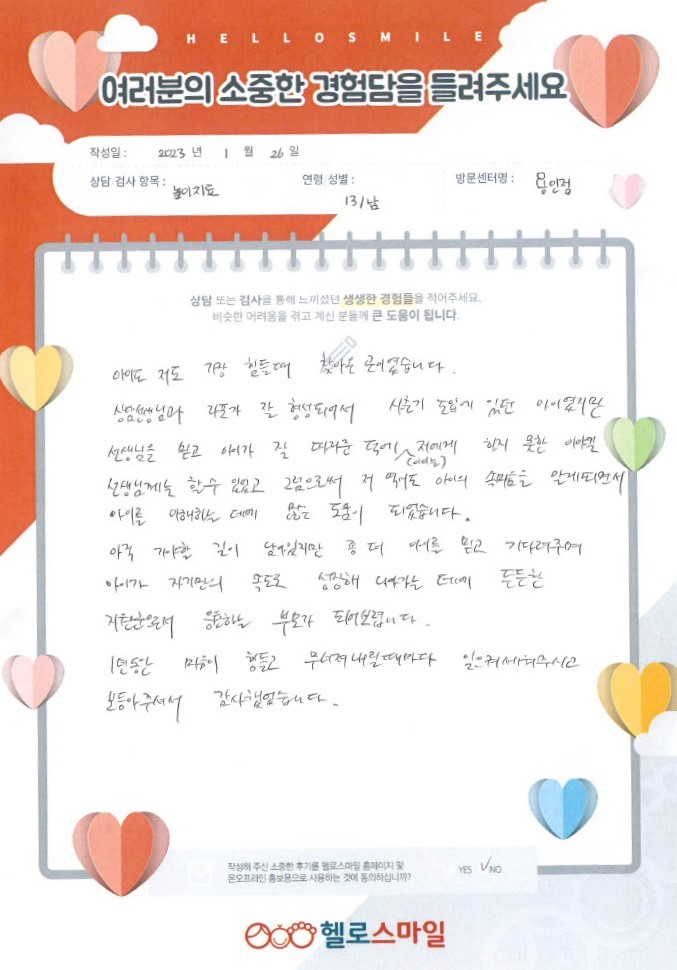 HELLOSMILE
여러분의 소중한 경험담을 들려주세요
작성일 : 2023 년 1 월 26 일
상담 검사 항목 : 놀이치료 연령/성별 : 13/남 방문센터명 : 용인점
상담 또는 검사를 통해 느끼셨던 생생한 경험들을 적어주세요.
비슷한 어려움을 겪고 계신 분들께 큰 도움이 됩니다.
아이도 저도 가장 힘들때 찾아온 곳이였습니다.
상담선생님과 라포가 잘 형성되어서 사춘기 도입에 있던 아이였지만
선생님을 믿고 아이가 잘 따라준 덕에 (아이는) 저에게 하지 못한 이야길
선생님께는 할수 있었고 그럼으로써 저 역시도 아이의 속마음을 알게되면서
아이를 이해하는 데에 많은 도움이 되었습니다.
아직 가야할 길이 남아있지만 좀 더 아이를 믿고 기다려주며
아이가 자기만의 속도로 성장해 나아가는 데에 든든한
지원군으로서 응원하는 부모가 되어보렵니다.
1년동안 마음이 힘들고 무너져내릴때마다 일으켜세워주시고
보듬아주셔서 감사했었습니다.
작성해 주신 소중한 후기를 헬로스마일 홈페이지 및
온오프라인 홍보용으로 사용하는 것에 동의하십니까? YES ✓ NO
헬로스마일